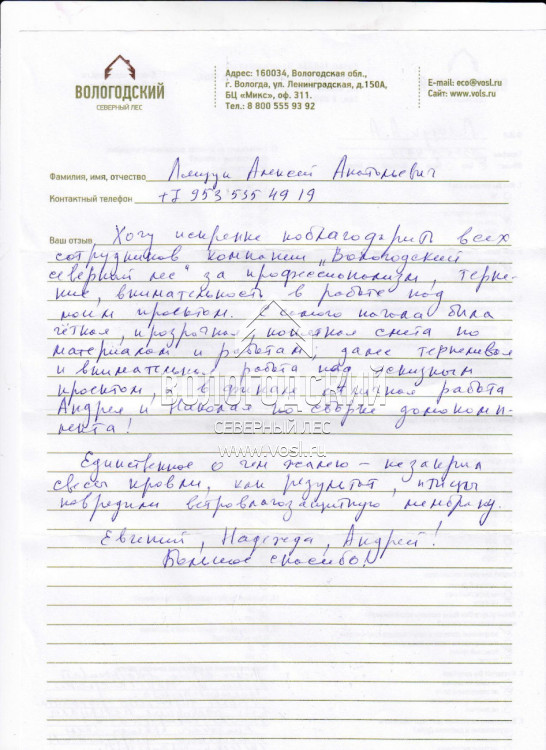 ВОЛОГОДСКИЙ
СЕВЕРНЫЙ ЛЕС
Адрес: 160034, Вологодская обл.,
г. Вологда, ул. Ленинградская, д.150А,
БЦ «Микс», оф. 311.
Тел.: 8 800 555 93 92
E-mail: eco@vosl.ru
Сайт: www.vols.ru
Фамилия, имя, отчество Алексей Анатольевич
Контактный телефон +7 953 535 49 19
Ваш отзыв Хочу искренне поблагодарить всех
сотрудников компании „Вологодский
северный лес" за профессионализм, терпе-
ние, внимательность в работе над
моим проектом. С самого начала была
чёткая, прозрачная, понятная смета по
материалам и работам, далее терпеливая
и внимательная работа над эскизным
проектом, и в финале отличная работа
Андрея и Николая по сборке домокомп-
лекта!
Единственное о чем жалею – не закрыл
свесы кровли, как результат, птицы
повредили ветровлагозащитную мембрану.
Евгений, Надежда, Андрей!
Большое спасибо!
ВОЛОГОДСКИЙ
СЕВЕРНЫЙ ЛЕС
www.vosl.ru
ВОЛОГОДСКИЙ
СЕВЕРНЫЙ ЛЕС
www.vosl.ru